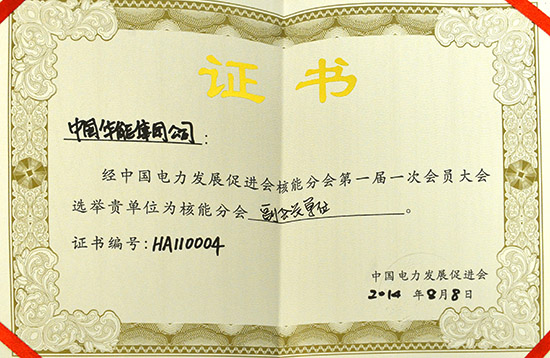 证书
中国华能集团公司：
经中国电力发展促进会核能分会第一届一次会员大会
选举贵单位为核能分会副会长单位。
证书编号：HA110004
中国电力发展促进会
2014年8月8日